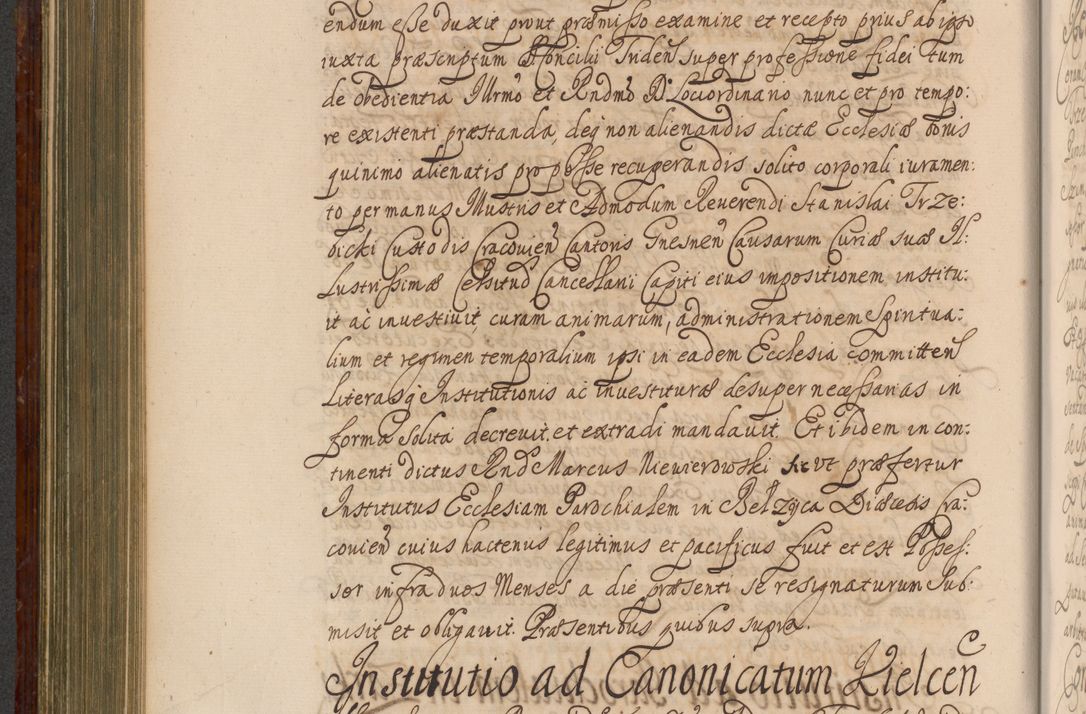 endum esse duxit prout præmisso examine et recepto prius ab ipso
iuxta præscriptum Concilii Triden super professione fidei tum
de obedientia Illrmo et Rndmo D: Lociordinario nunc et pro tempo:
re existenti præstanda, deq non alienandis dictæ Ecclesiæ bonis
quinimo alienatis pro posse recuperandis solito corporali iuramen:
to per manus Illustris et Admodum Reuerendi Stanislai Trze:
bicki Custodis Cracouien Cantoris Gnesnen Causarum Curiæ suæ Il:
Lustrissimæ Celsitud Cancellarii Capiti eius impositionem institu:
it ac inuestiuit, curam animarum, administrationem Spiritua:
lium et regimen temporalium ipsi in eadem Ecclesia committens
Literasq Institutionis ac inuestituræ desuper necessarias in
forma solita decreuit et extradi mandauit. Et ibidem in con:
tinenti dictus Rnd Marcus Niewierowski ut præfertur
Institutus Ecclesiam Parochialem in Bełzyca Diæcesis Cra:
couien cuius hactenus legitimus et pacificus fuit et est Posses:
sor infra duos Menses a die præsenti se resignaturum Sub:
misit et obligauit. Præsentibus quibus supra.
Institutio ad Canonicatum Kielcen